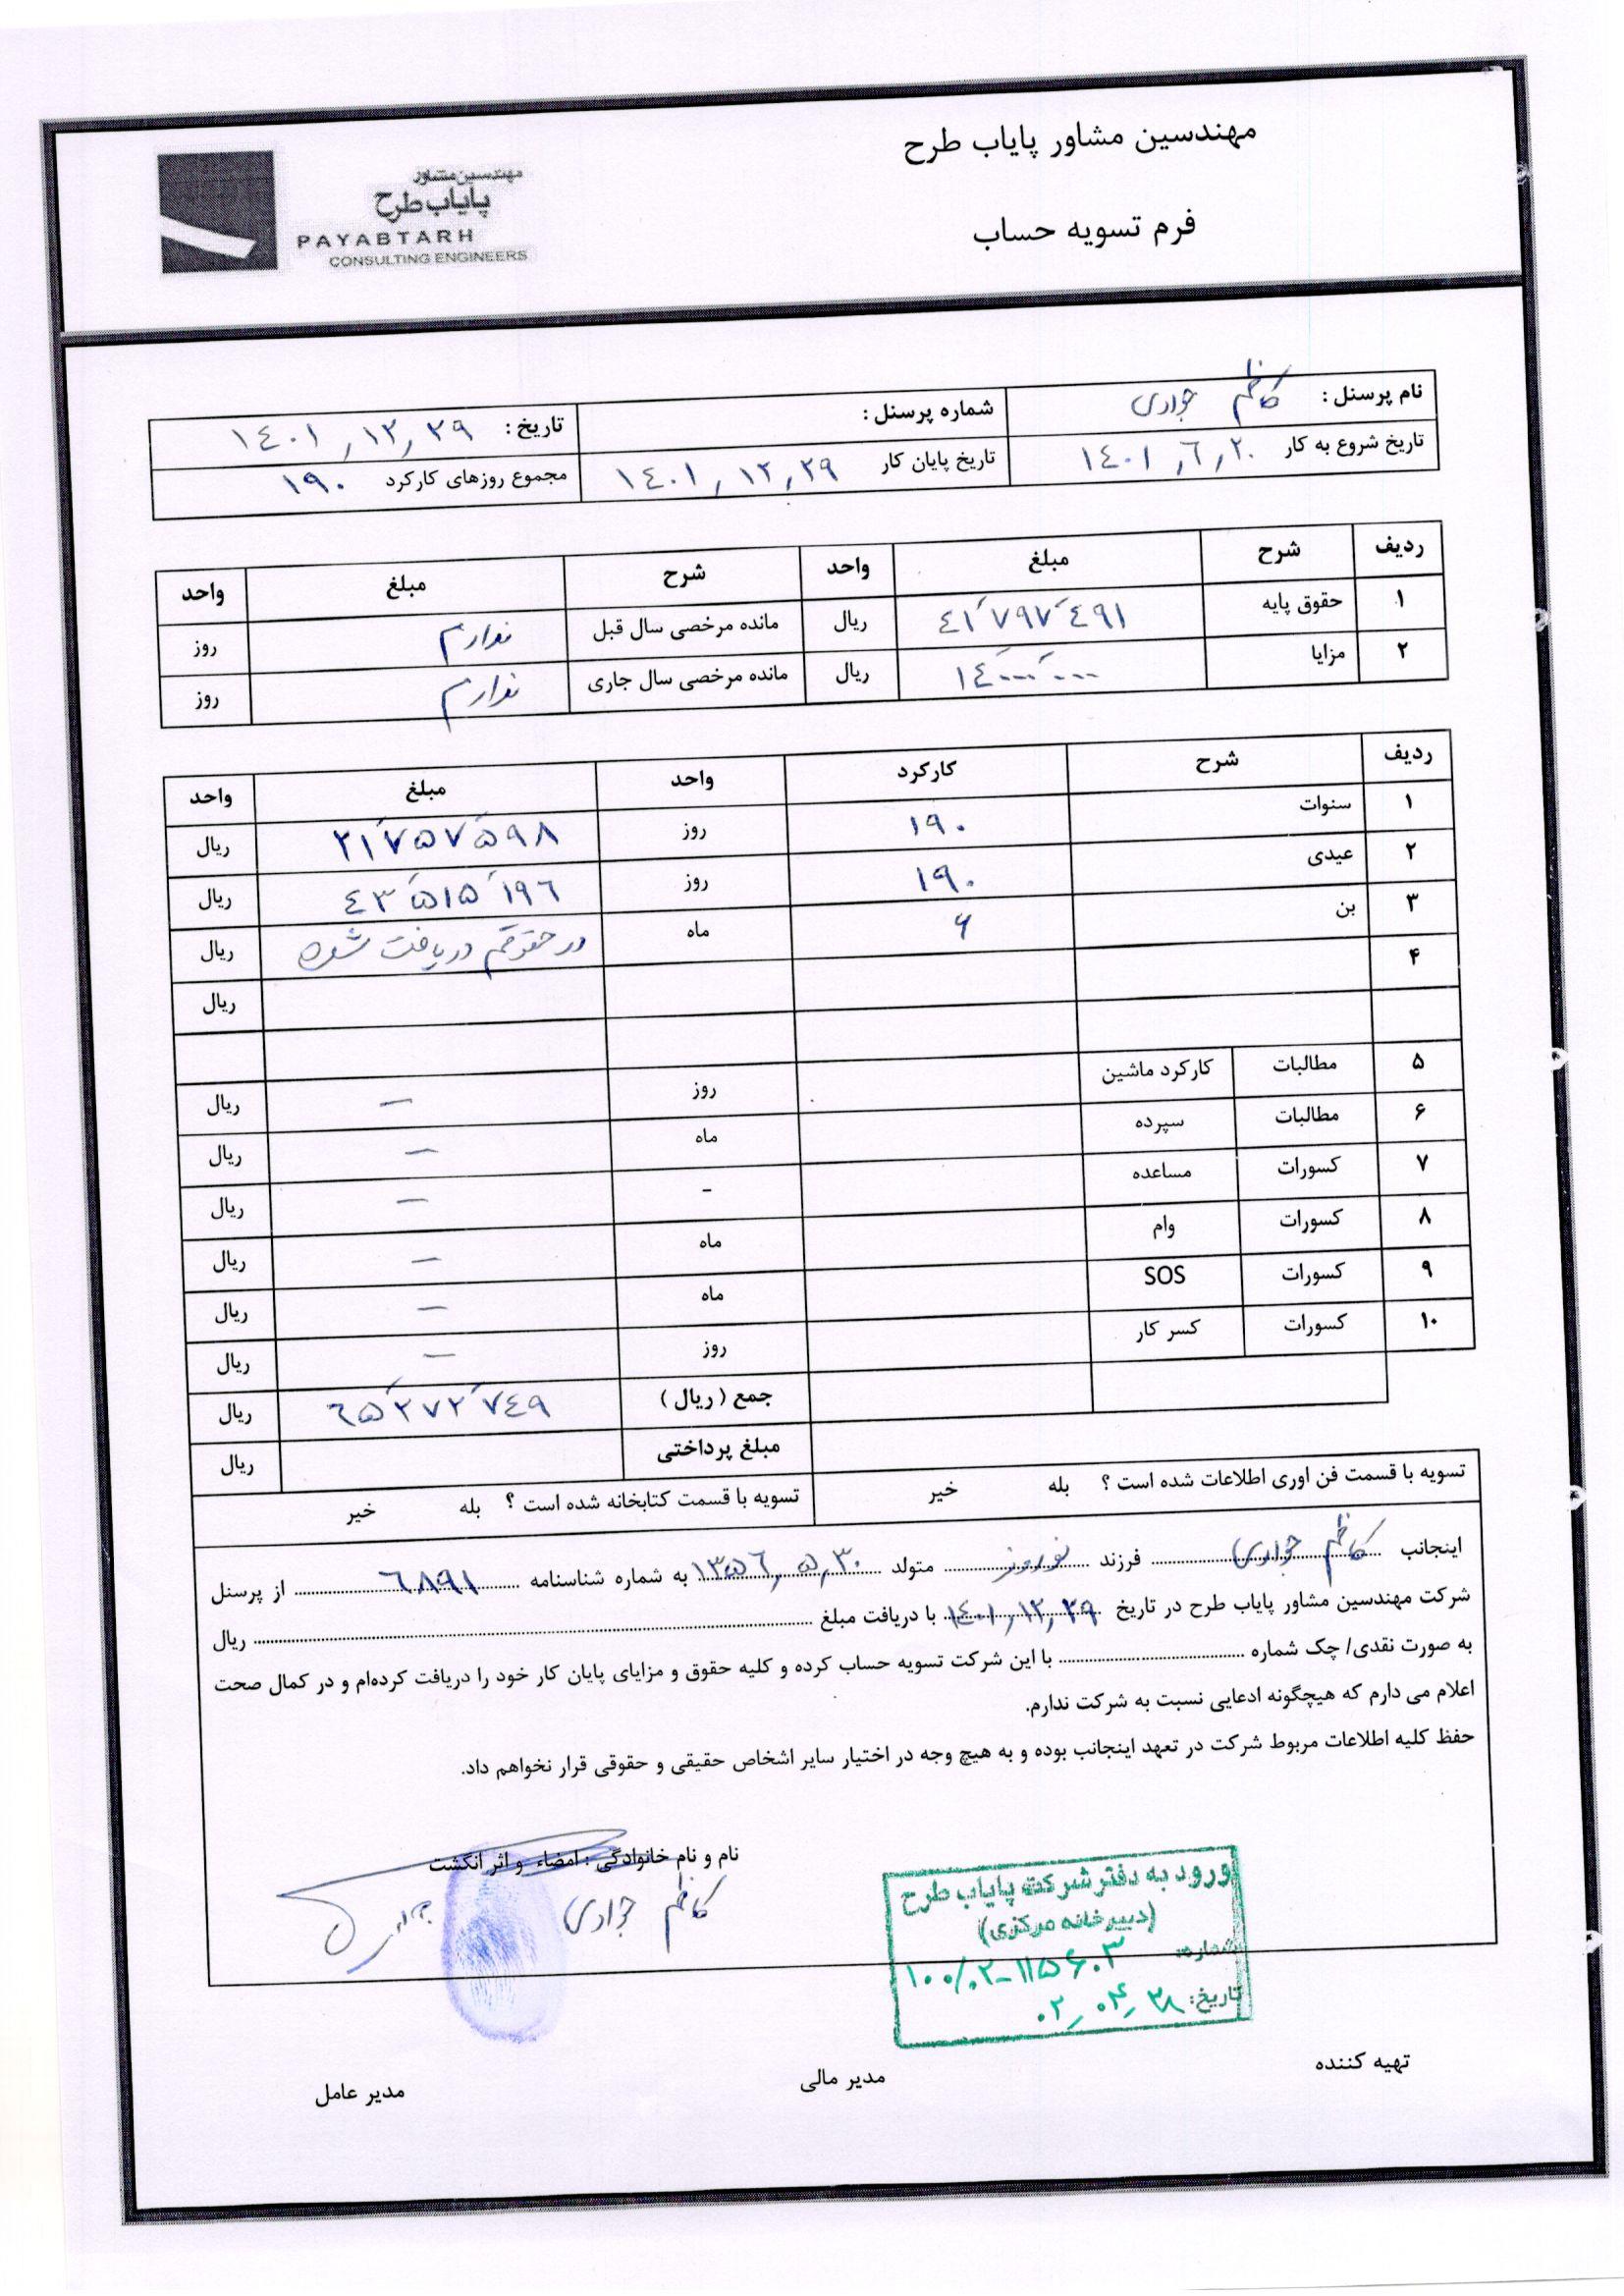 مهندسین مشاور پایاب طرح
فرم تسویه حساب
مهندسین مشاور
پایاب طرح
PAYABTARH
CONSULTING ENGINEERS
نام پرسنل : کاظم جوادی شماره پرسنل : تاریخ : ۱۴۰۱/۱۲/۲۹
تاریخ شروع به کار ۱۴۰۱/۶/۲۰ تاریخ پایان کار ۱۴۰۱/۱۲/۲۹ مجموع روزهای کارکرد ۱۹۰
ردیف شرح مبلغ واحد شرح مبلغ واحد
۱ حقوق پایه ۴۱٬۷۹۷٬۴۹۱ ریال مانده مرخصی سال قبل ندارم روز
۲ مزایا ۱۴٬۰۰۰٬۰۰۰ ریال مانده مرخصی سال جاری ندارم روز
ردیف شرح کارکرد واحد مبلغ واحد
۱ سنوات ۱۹۰ روز ۲۱٬۷۵۷٬۵۹۸ ریال
۲ عیدی ۱۹۰ روز ۴۳٬۵۱۵٬۱۹۶ ریال
۳ بن ۶ ماه در حقوقم دریافت شده ریال
۴ ریال
۵ مطالبات کارکرد ماشین روز – ریال
۶ مطالبات سپرده ماه – ریال
۷ کسورات مساعده - – ریال
۸ کسورات وام ماه – ریال
۹ کسورات SOS ماه – ریال
۱۰ کسورات کسر کار روز – ریال
جمع ( ریال ) ۶۵٬۲۷۲٬۷۴۹ ریال
مبلغ پرداختی ریال
تسویه با قسمت فن اوری اطلاعات شده است ؟ بله خیر تسویه با قسمت کتابخانه شده است ؟ بله خیر
اینجانب کاظم جوادی فرزند نوروز متولد ۱۳۵۶/۵/۳۰ به شماره شناسنامه ۶۸۹۱ از پرسنل
شرکت مهندسین مشاور پایاب طرح در تاریخ ۱۴۰۱/۱۲/۲۹ با دریافت مبلغ ........ ریال
به صورت نقدی/ چک شماره ........ با این شرکت تسویه حساب کرده و کلیه حقوق و مزایای پایان کار خود را دریافت کرده‌ام و در کمال صحت
اعلام می دارم که هیچگونه ادعایی نسبت به شرکت ندارم.
حفظ کلیه اطلاعات مربوط شرکت در تعهد اینجانب بوده و به هیچ وجه در اختیار سایر اشخاص حقیقی و حقوقی قرار نخواهم داد.
نام و نام خانوادگی : امضاء و اثر انگشت
کاظم جوادی
ورود به دفتر شرکت پایاب طرح
(دبیرخانه مرکزی)
شماره: ۱۰۰/۰۲-۱۱۵۶۰۳
تاریخ: ۰۲/۰۴/۲۸
تهیه کننده مدیر مالی مدیر عامل